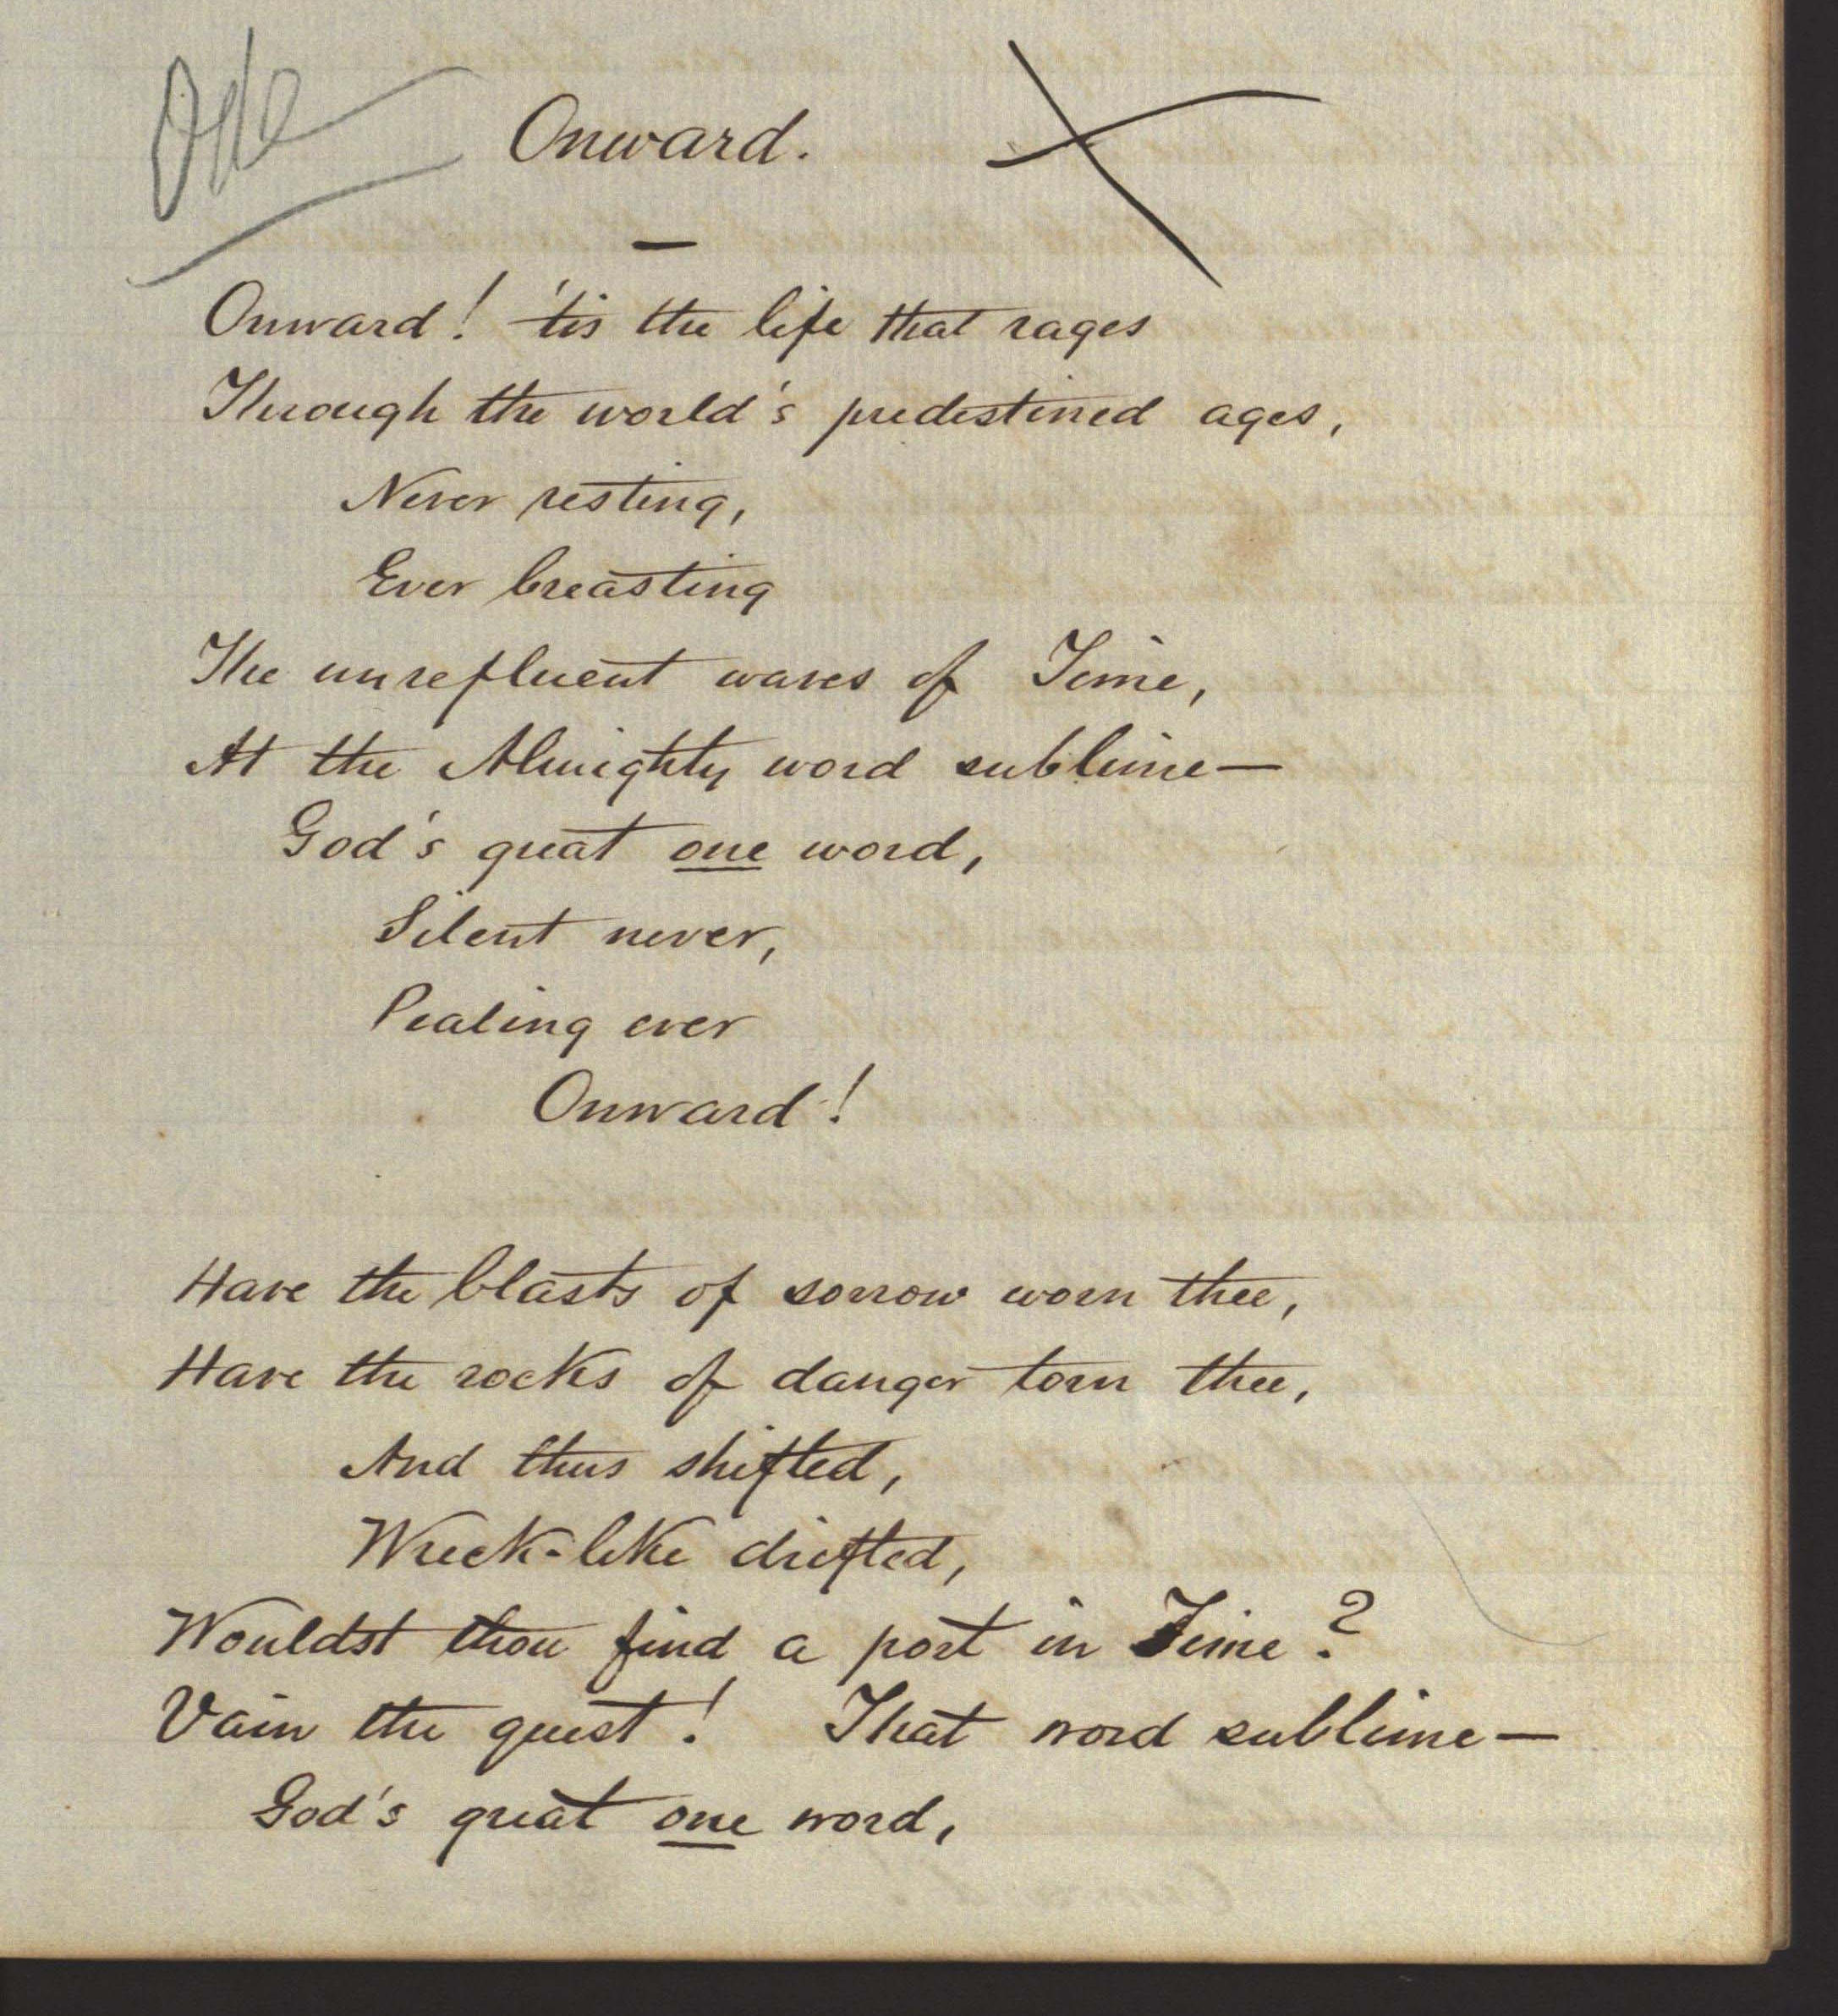 Ode
Onward.
Onward! 'tis the life that rages
Through the world's predestined ages,
Never resting,
Ever breasting
The unrefluent waves of Time,
At the Almighty word sublime—
God's great one word,
Silent never,
Pealing ever
Onward!
Have the blasts of sorrow worn thee,
Have the rocks of danger torn thee,
And thus shifted,
Wreck-like drifted,
Wouldst thou find a port in Time?
Vain the quest! That word sublime—
God's great one word,